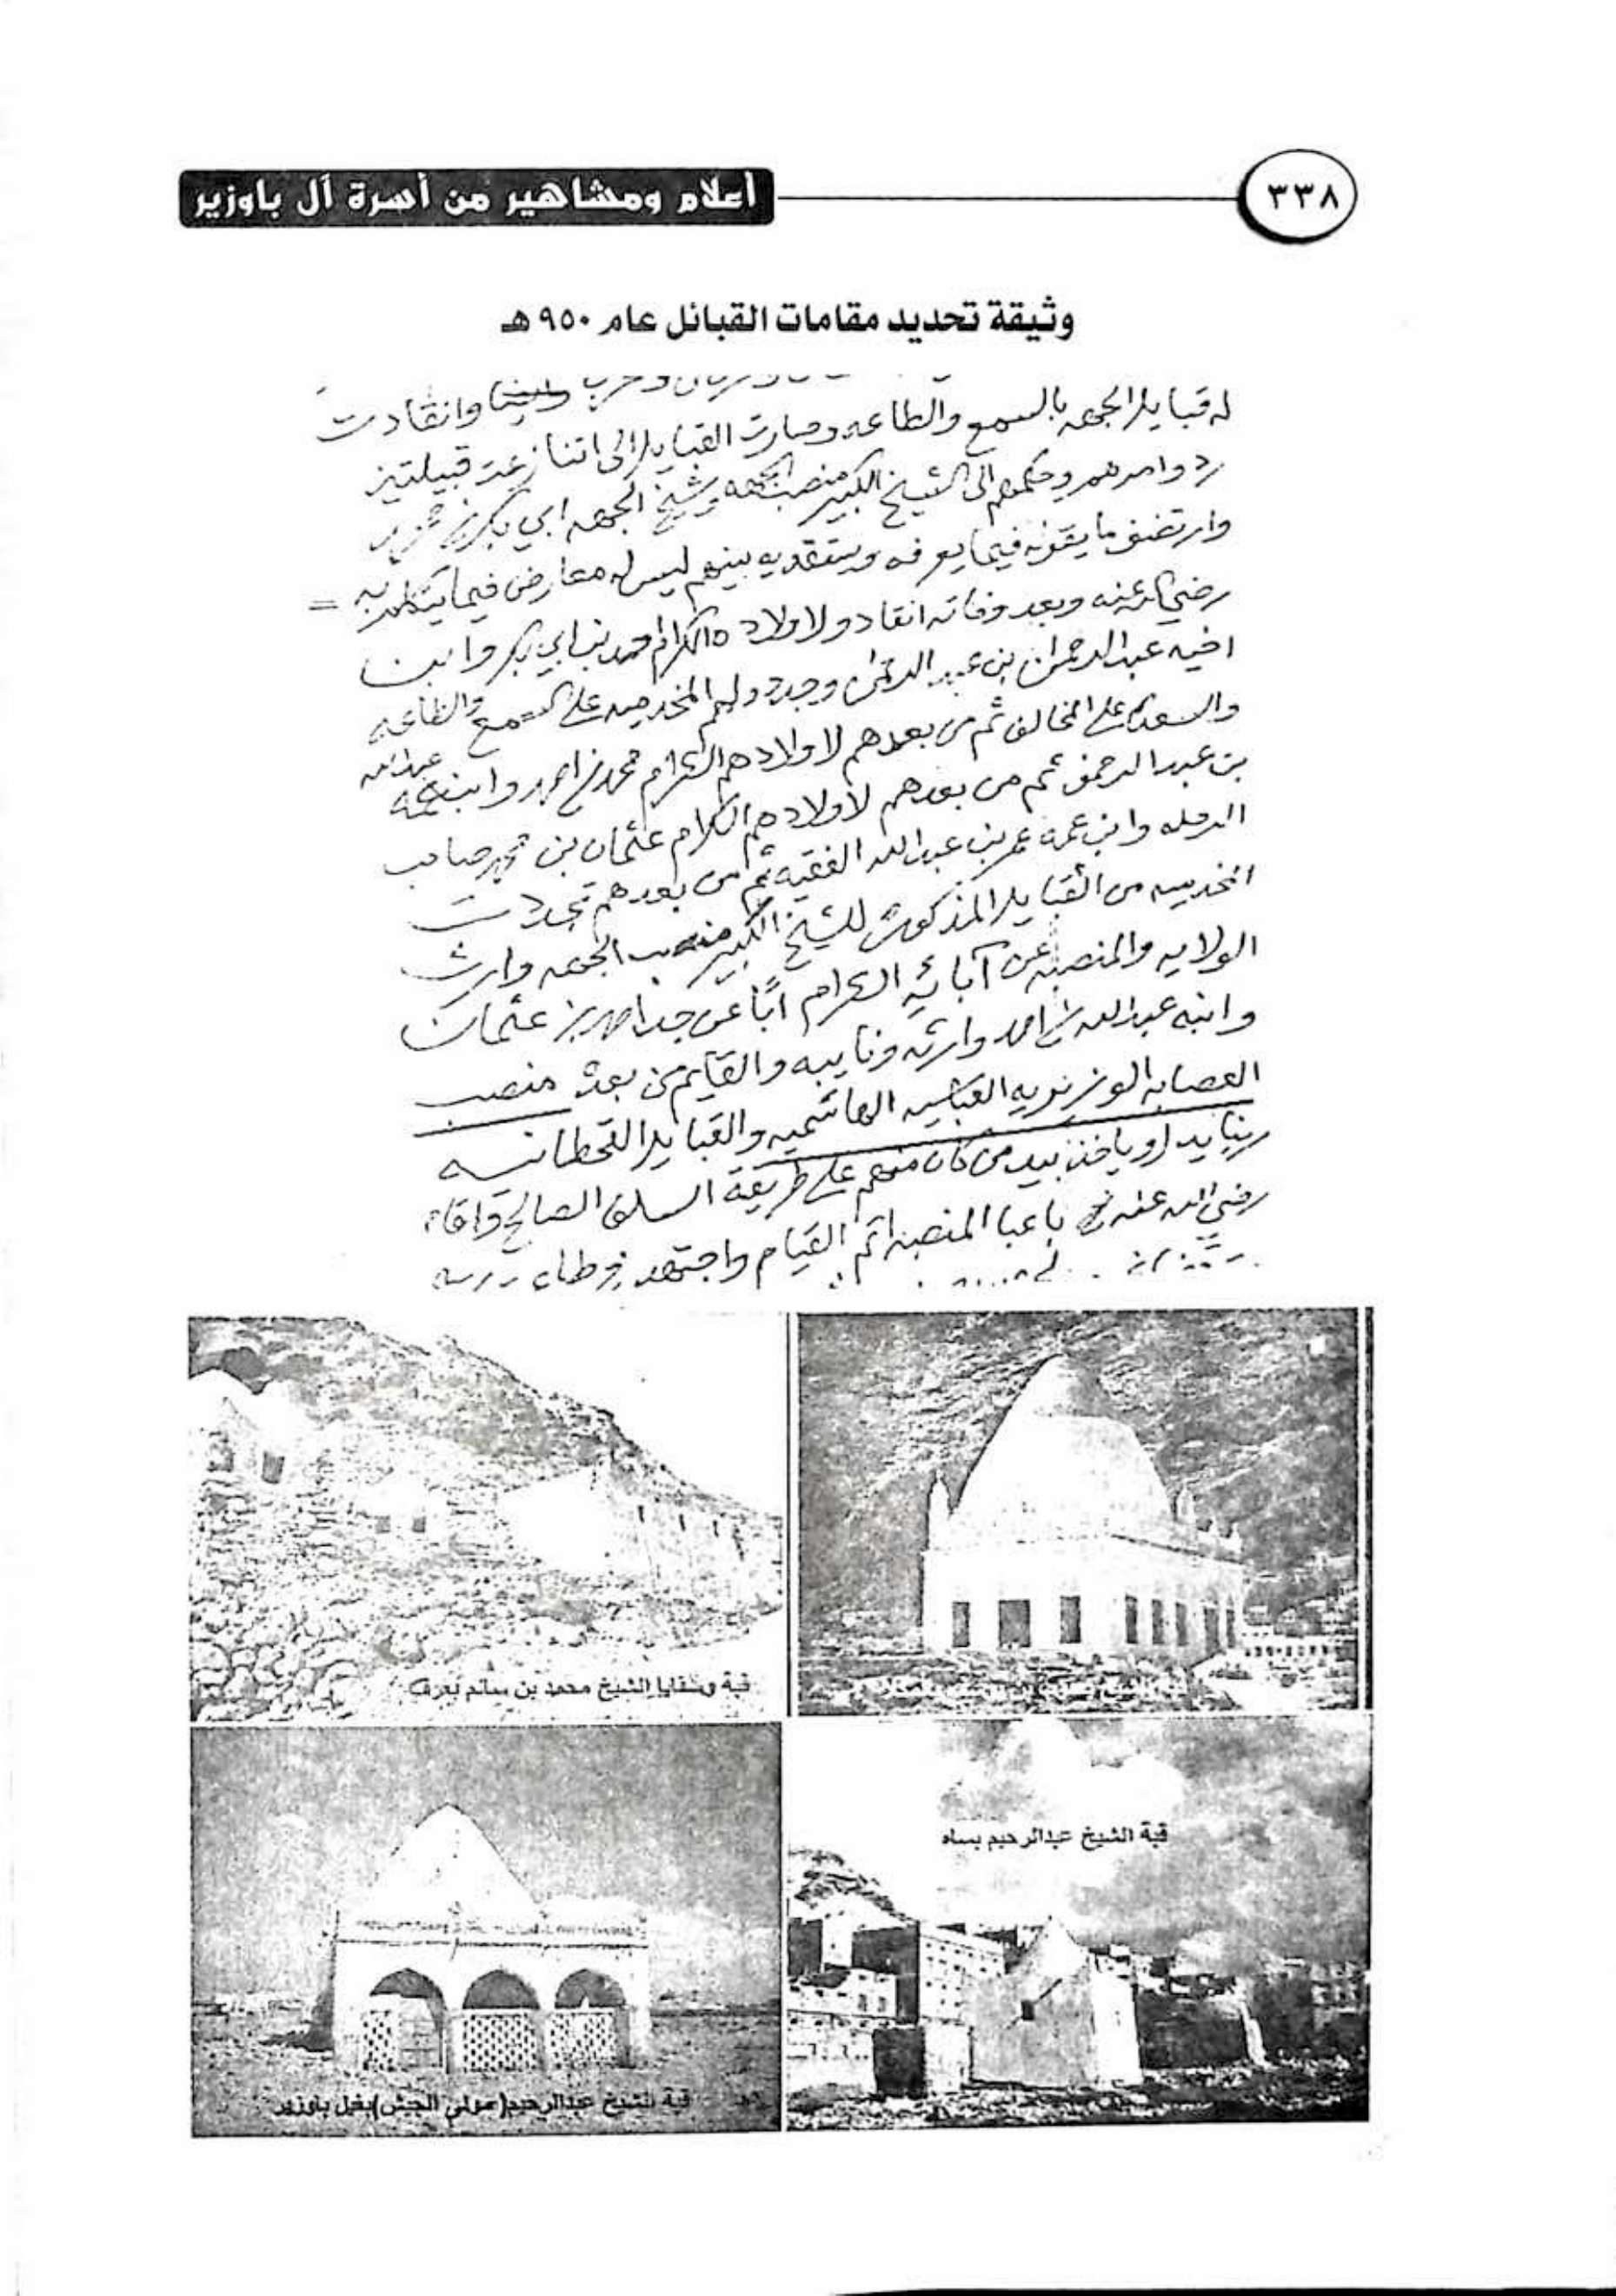 ٣٣٨
أعلام ومشاهير من أسرة آل باوزير
وثيقة تحديد مقامات القبائل عام ٩٥٠ هـ
وانقادت
له قبايل الجهه بالسمع والطاعه وصارت القبايل الى اتنازعت قبيلتين
ردوا امرهم وحكمهم الى الشيخ الكبير منصب الجهه وشيخ الجهه ابي بكر بن
وارتضو ما يقوله فيما يعرفه ويعتقد به بينهم ليس له معارض فيما يتكلم به =
رضي الله عنه وبعد وفاته انقادو لاولاده الكرام احمد بن ابي بكر وابن
اخيه عبدالرحمن بن عبد الرحمن وجددو لهم على السمع والطاعه
على المخالف ثم من بعدهم لاولادهم الكرام محمد بن احمد وابن عمه عبدالله
بن عبد الرحمن ثم من بعدهم لاولادهم الكرام عثمان بن محمد صاحب
وابن عمه عمر بن عبدالله الفقيه ثم من بعدهم تجددت
من القبايل المذكورين للشيخ الكبير منصب الجهه وارث
الولايه والمنصبه عن آبائه الكرام ابًا عن جد احمد بن عثمان
وابنه عبدالله بن احمد وارثه ونايبه والقايم من بعده منصب
العصابه الوزيريه العباسيه الهاشميه والقبايل القحطانيه
وياخذ بيد من كان منهم على طريقة السلف الصالح وقام
رضي الله عنه باعبا المنصبه اتم القيام واجتهد في
قبة وسقايا الشيخ محمد بن سالم بعرف
قبة الشيخ عبدالرحيم بساه
قبة الشيخ عبدالرحيم (مولى الجيش) بغيل باوزير